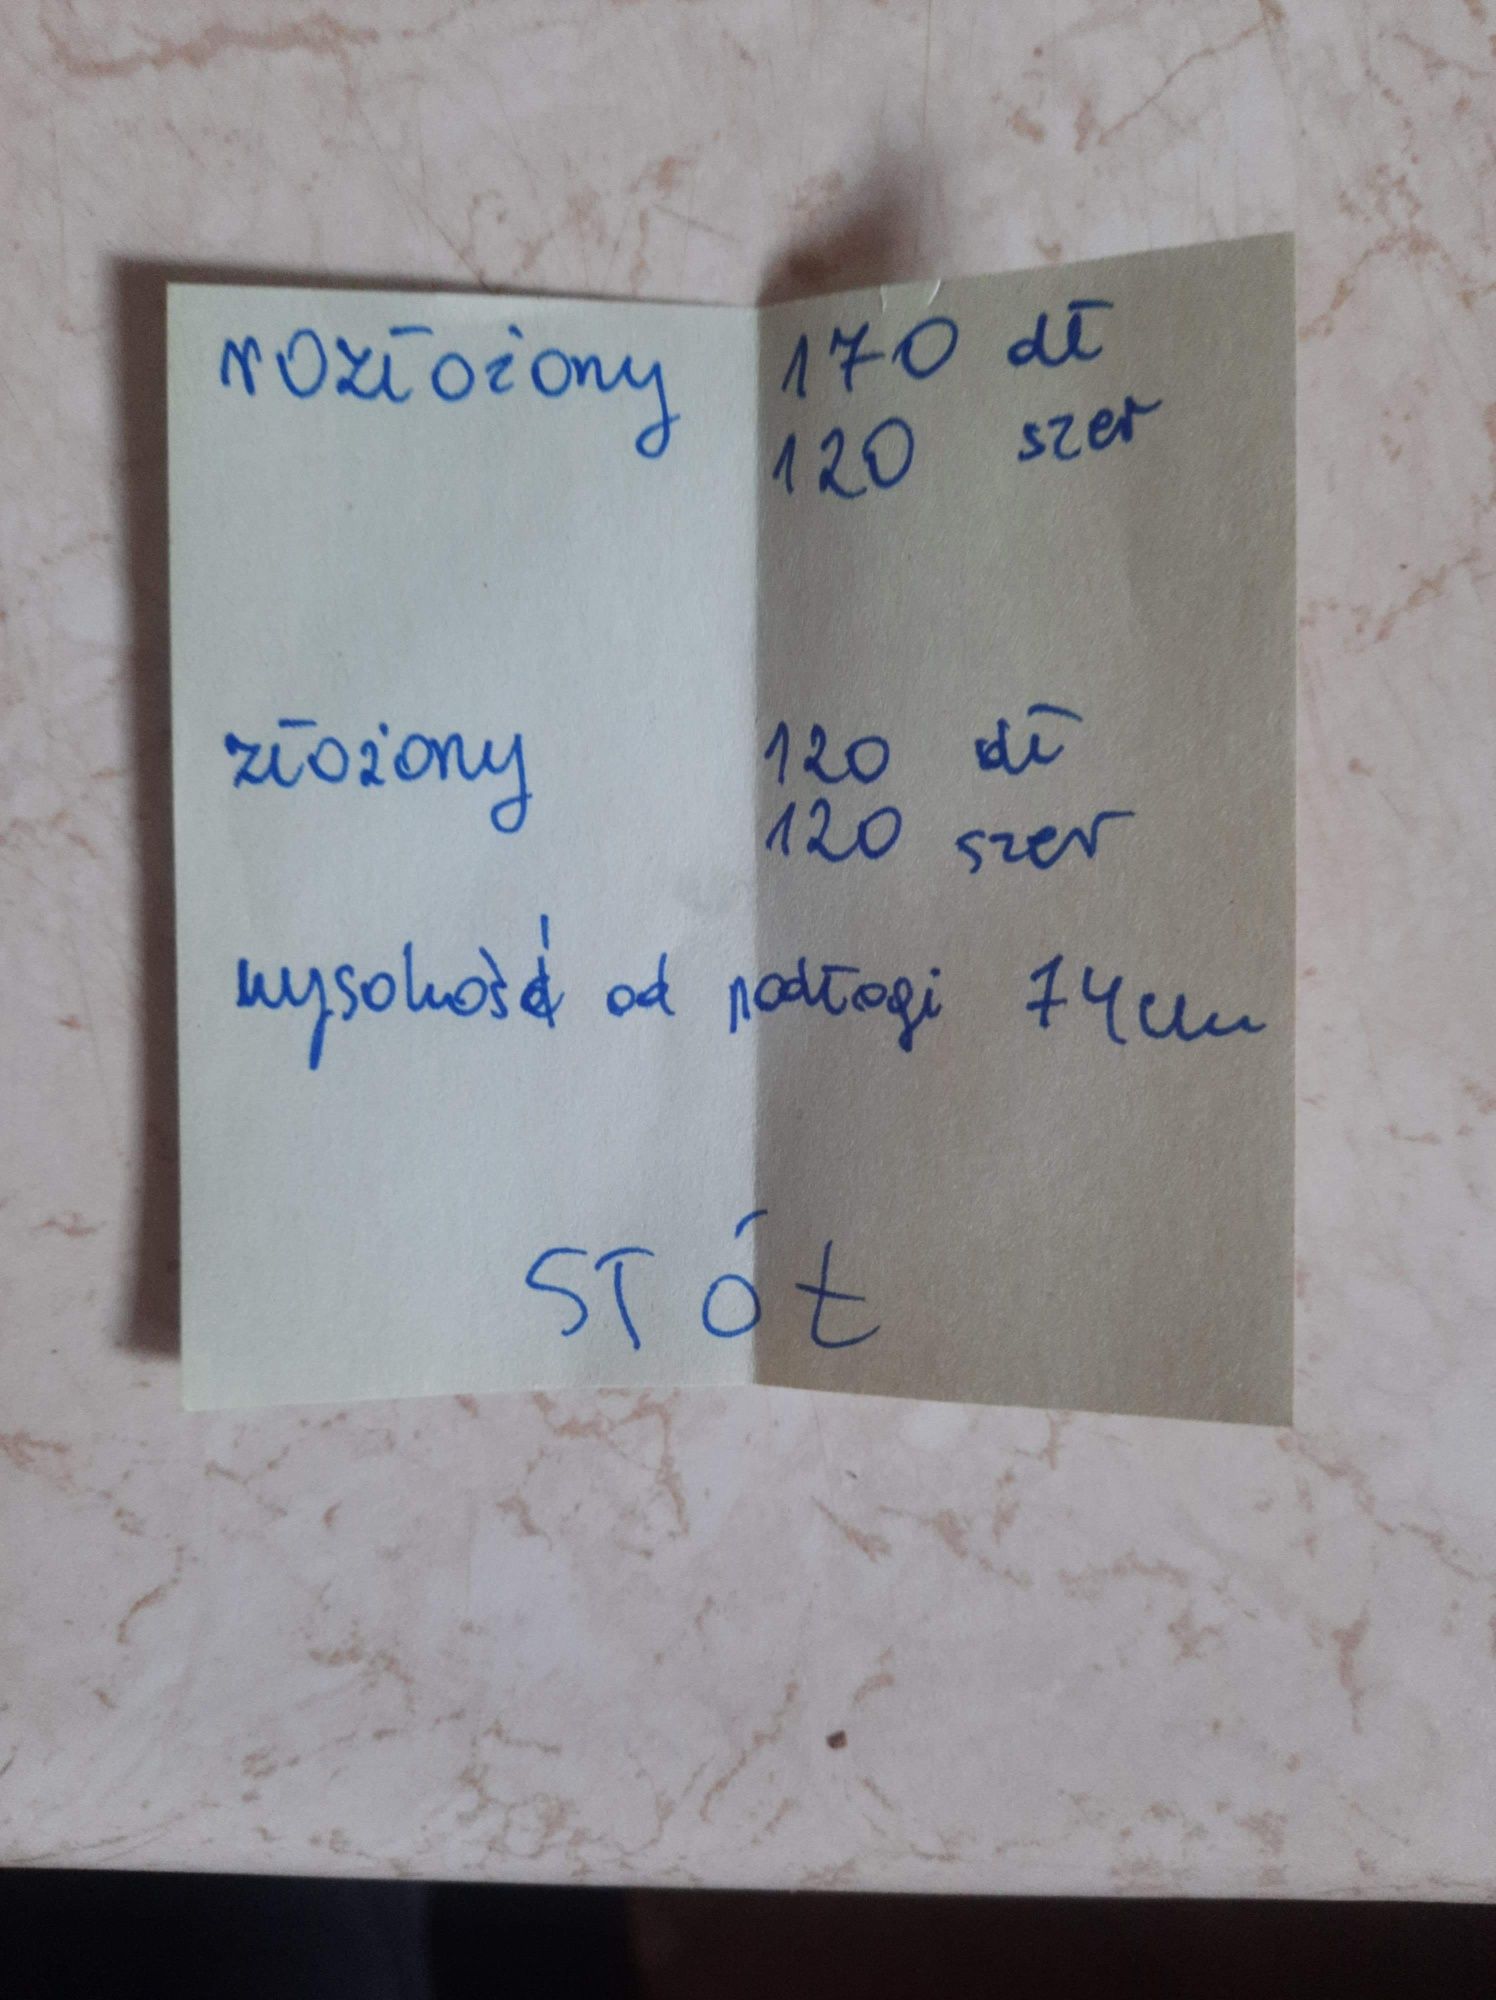 rozłożony 170 dł
120 szer
złożony 120 dł
120 szer
wysokość od podłogi 74cm
STÓŁ